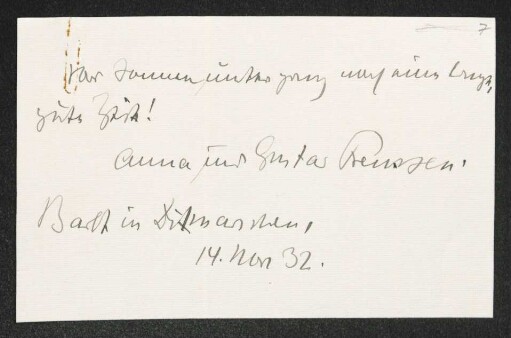 7
Vor Sonnenuntergang noch eine lange,
gute Zeit!
Anna und Gustav Frenssen.
Barlt in Ditmarschen,
14. Nov 32.